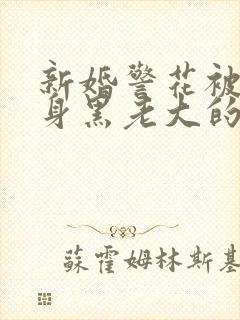 新婚警花被
身黑老大的
蘇霍姆林斯基